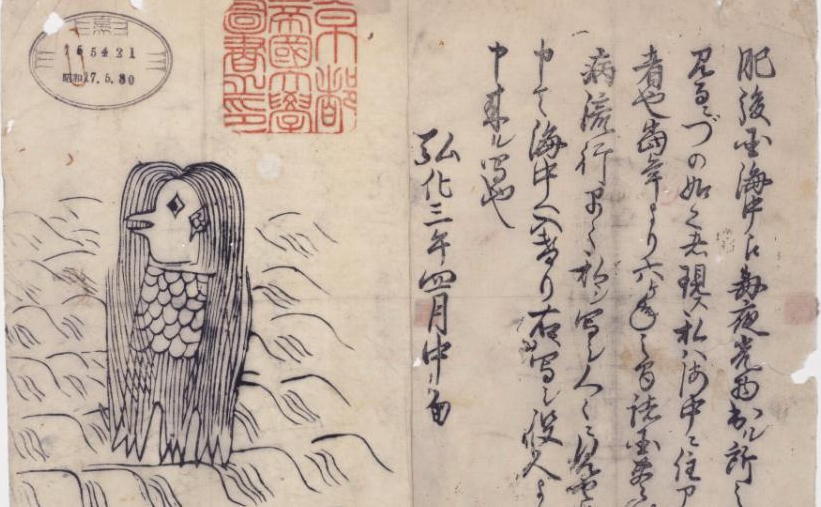 165421
昭和17.5.30
京都
帝國大學
圖書之印
肥後国海中え毎夜光物出ル所之
見るニづの如く者現ス私ハ海中ニ住ア
者也當年より六ヶ年之間諸国豊
病流行早々私ヲ写シ人々ニ見セ
申て海中へ入けり右写シ役人よ
申来ル写也
弘化三年四月中旬